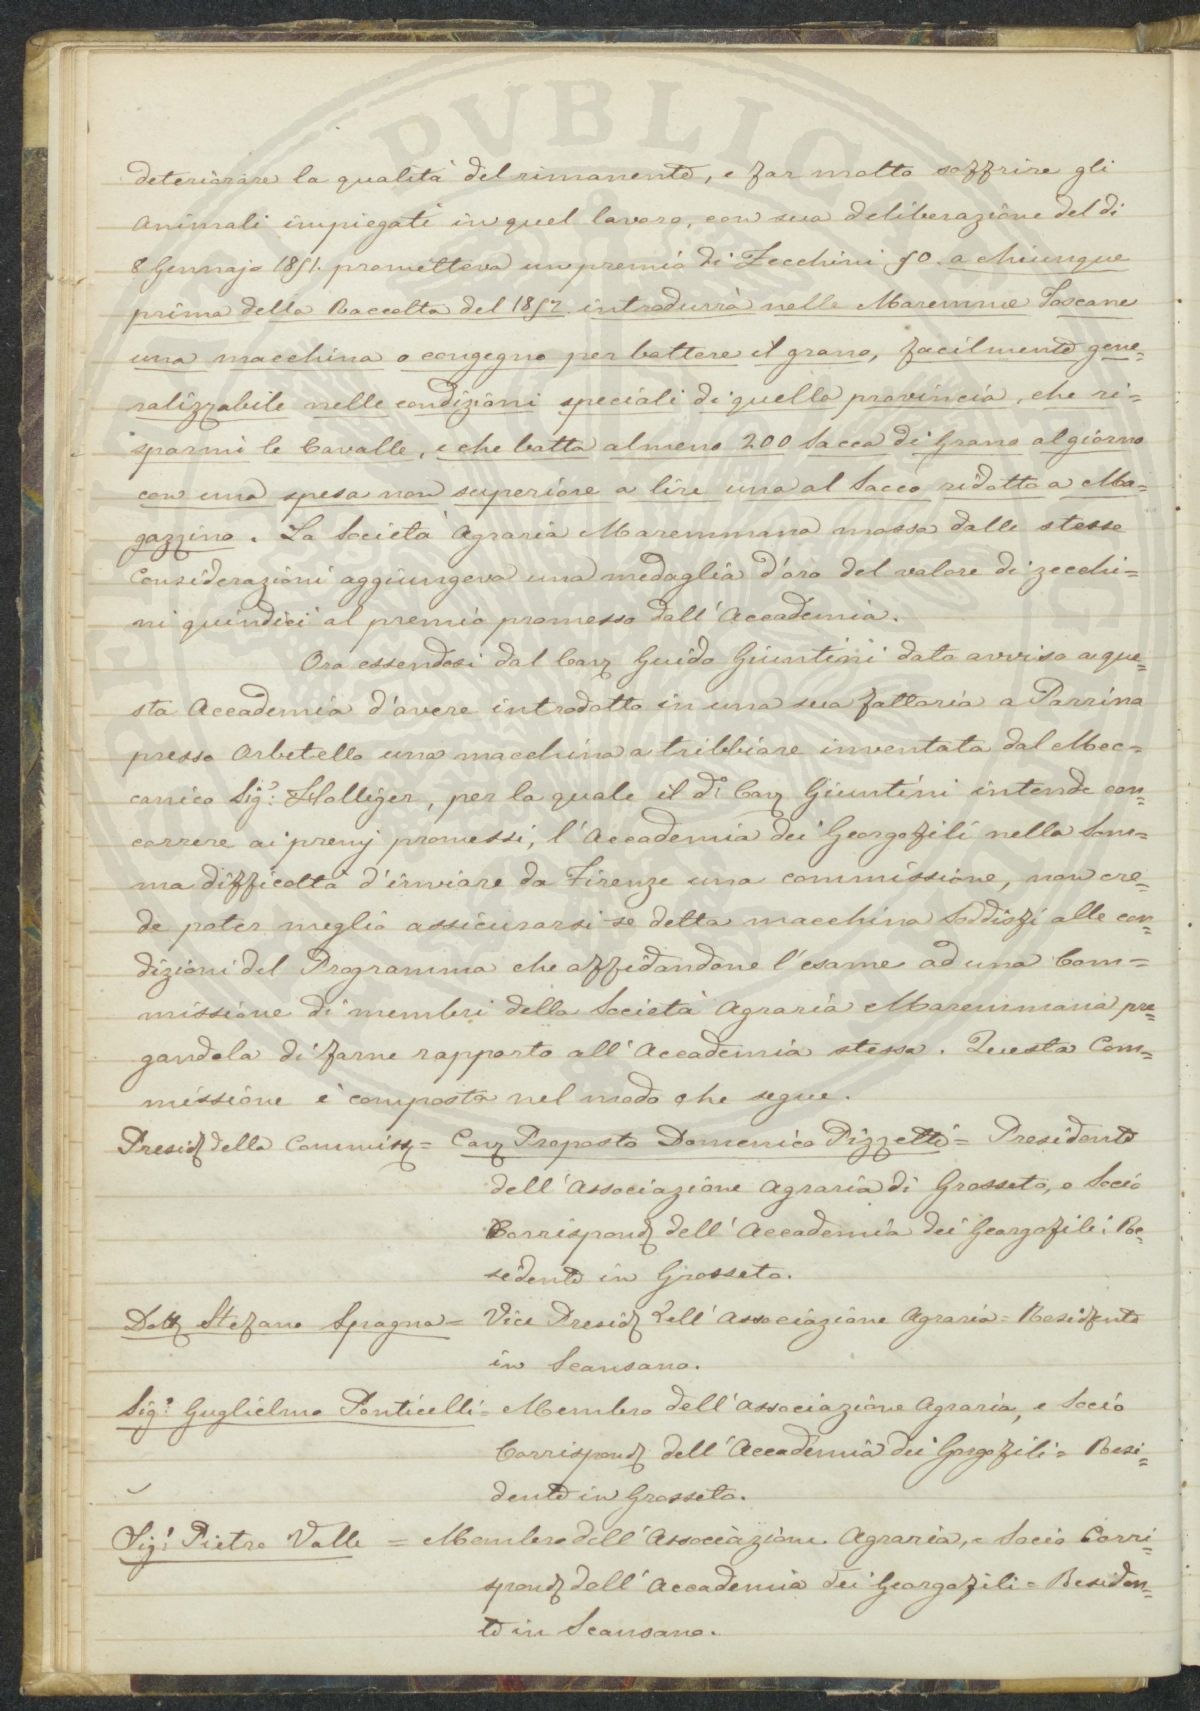 PVBLIC
deteriorare la qualità del rimanente, e far molto soffrire gli
animali impiegati in quel lavoro, con sua deliberazione del dì
8 Gennajo 1851. prometteva un premio di Zecchini 50. a chiunque
prima della Raccolta del 1852. introdurrà nelle Maremme Toscane
una macchina o congegno per battere il grano, facilmente gene=
ralizzabile nelle condizioni speciali di quella provincia, che ri=
sparmi le Cavalle, e che batta almeno 200 Sacca di Grano al giorno
con una spesa non superiore a lire una al Sacco ridotto a Ma=
gazzino. La Società Agraria Maremmana mossa dalle stesse
Considerazioni aggiungeva una medaglia d'oro del valore di zecchi=
ni quindici al premio promesso dall'Accademia.
Ora essendosi dal Cav Guido Giuntini dato avviso a que=
sta Accademia d'avere introdotto in una sua fattoria a Parrina
presso Orbetello una macchina a tribbiare inventata dal Mec=
canico Sig: Holliger, per la quale il do Cav Giuntini intende con=
correre ai premj promessi, l'Accademia dei Georgofili nella Som=
ma difficoltà d'inviare da Firenze una commissione, non cre=
de poter meglio assicurarsi se detta macchina Sodisfi alle con=
dizioni del Programma che affidandone l'esame ad una Com=
missione di membri della Società Agraria Maremmana pre=
gandola di farne rapporto all'Accademia stessa. Questa Com=
missione è composta nel modo che segue.
Presid della Commiss = Cav Proposto Domenico Pizzetti = Presidente
dell'Associazione Agraria di Grosseto, e Socio
Corrispond dell'Accademia dei Georgofili: Re=
sidente in Grosseto.
Dott Stefano Spagna = Vice Presid dell'Associazione Agraria = Residente
in Scansano.
Sig: Guglielmo Ponticelli = Membro dell'Associazione Agraria, e Socio
Corrispond dell'Accademia dei Gorgofili = Resi=
dente in Grosseto.
Sig: Pietro Valle = Membro dell'Associazione Agraria, e Socio Corri=
spond dell'Accademia dei Georgofili = Residen=
te in Scansano.